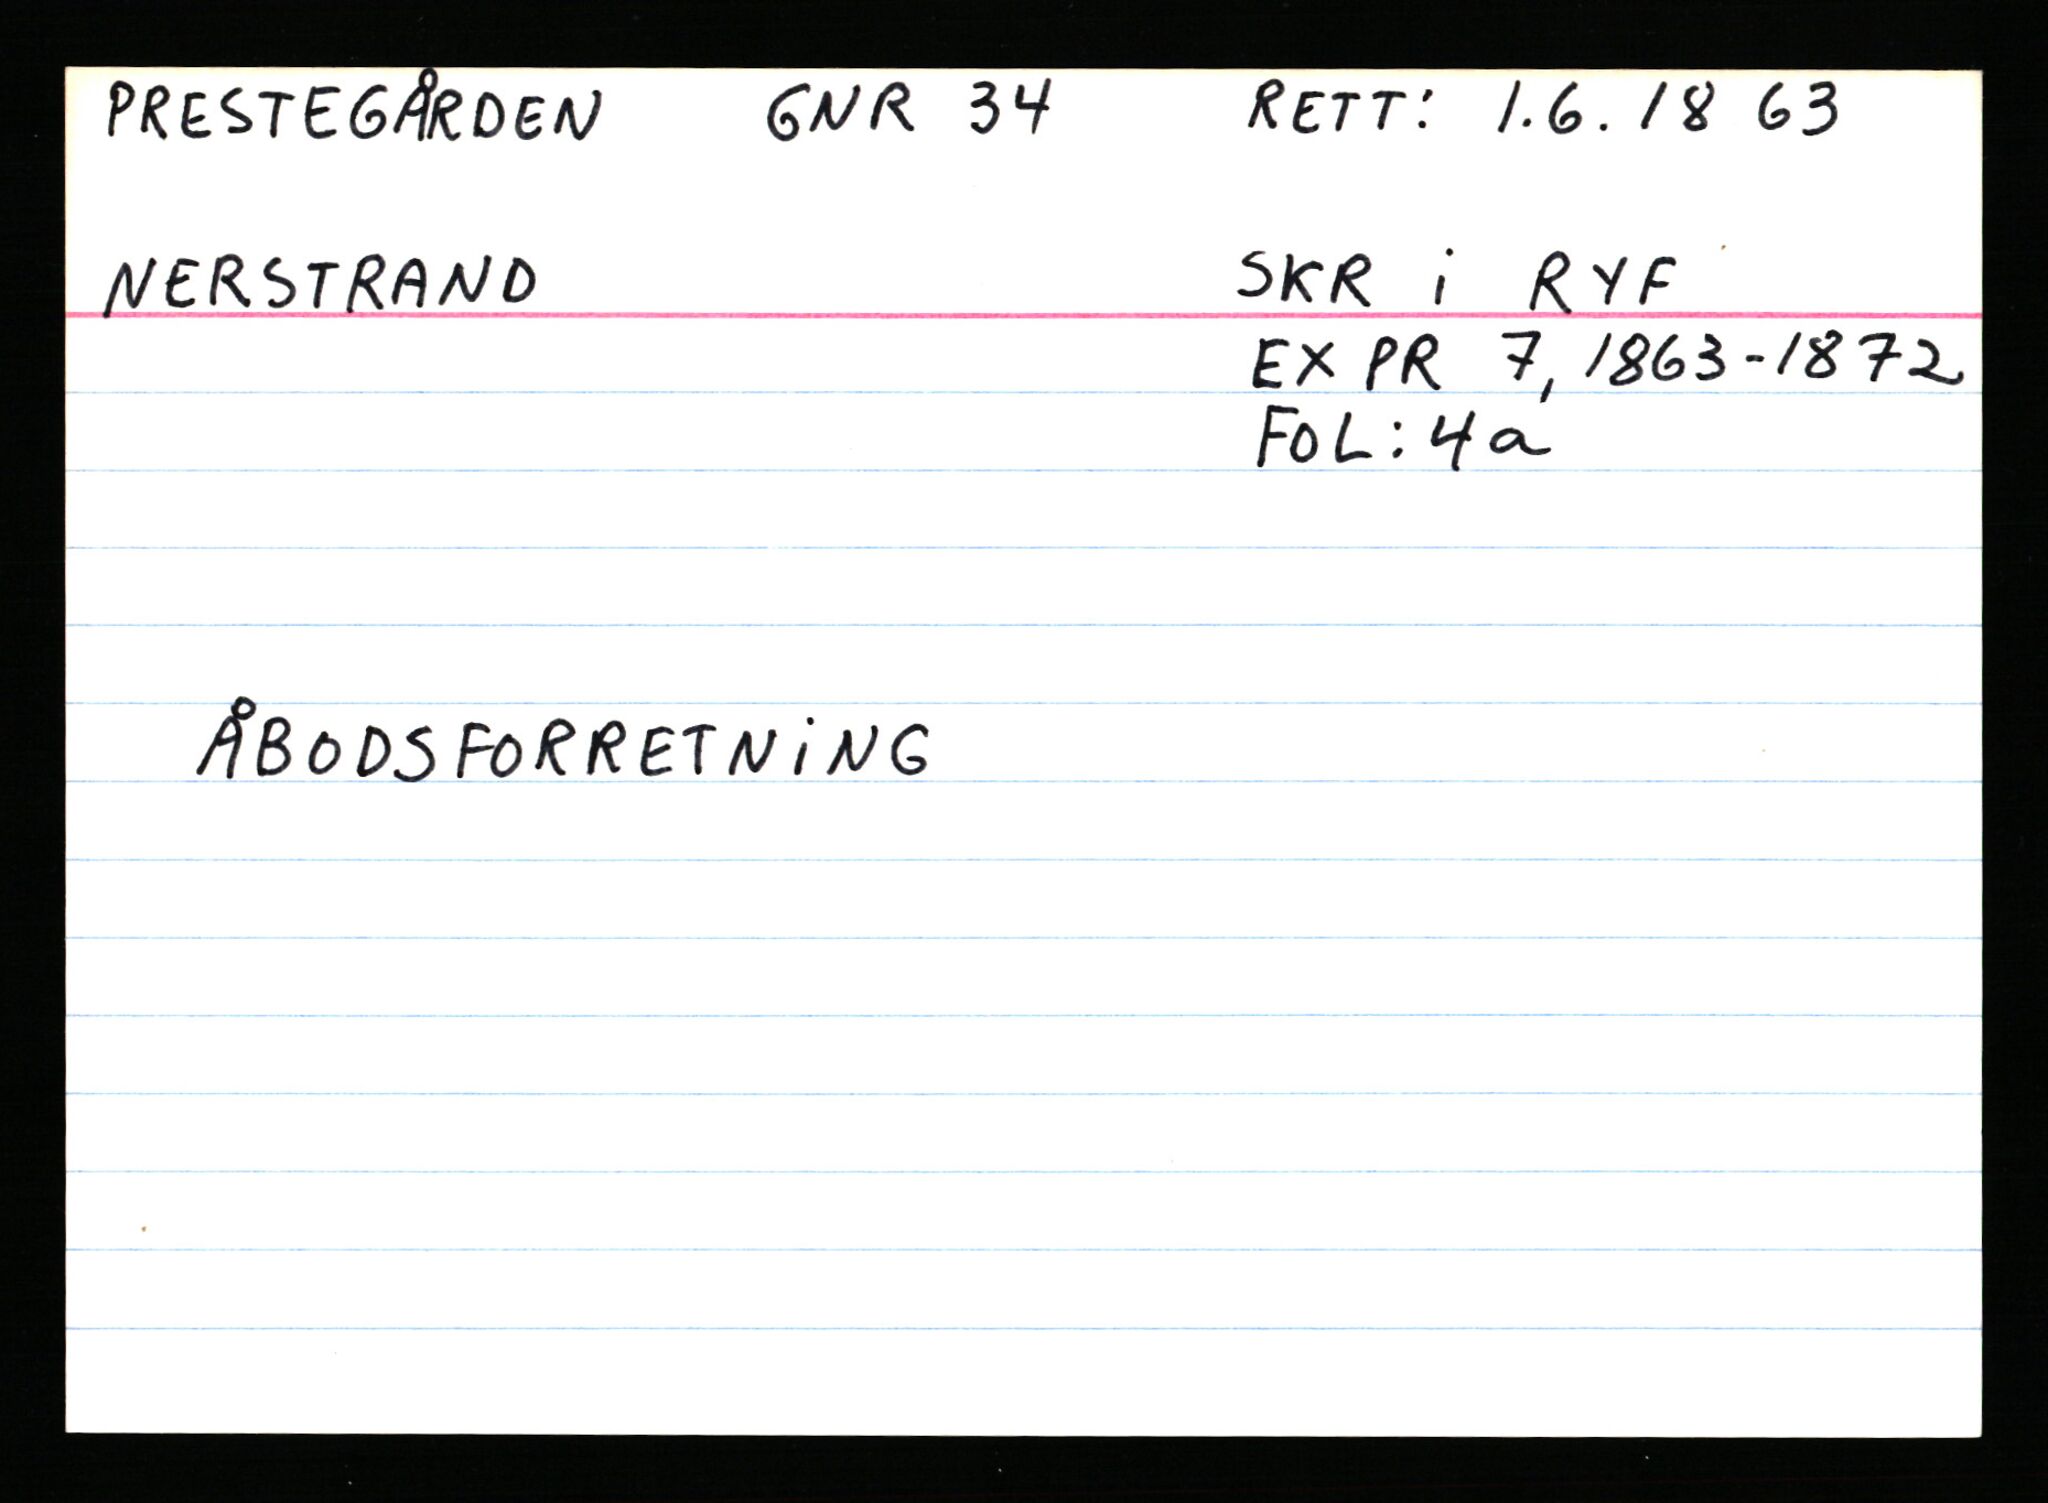 PRESTEGÅRDEN GNR 34 RETT: 1.6.1863
NERSTRAND SKR i RYF
EX PR 7, 1863-1872
FOL: 4a
ÅBODSFORRETNING